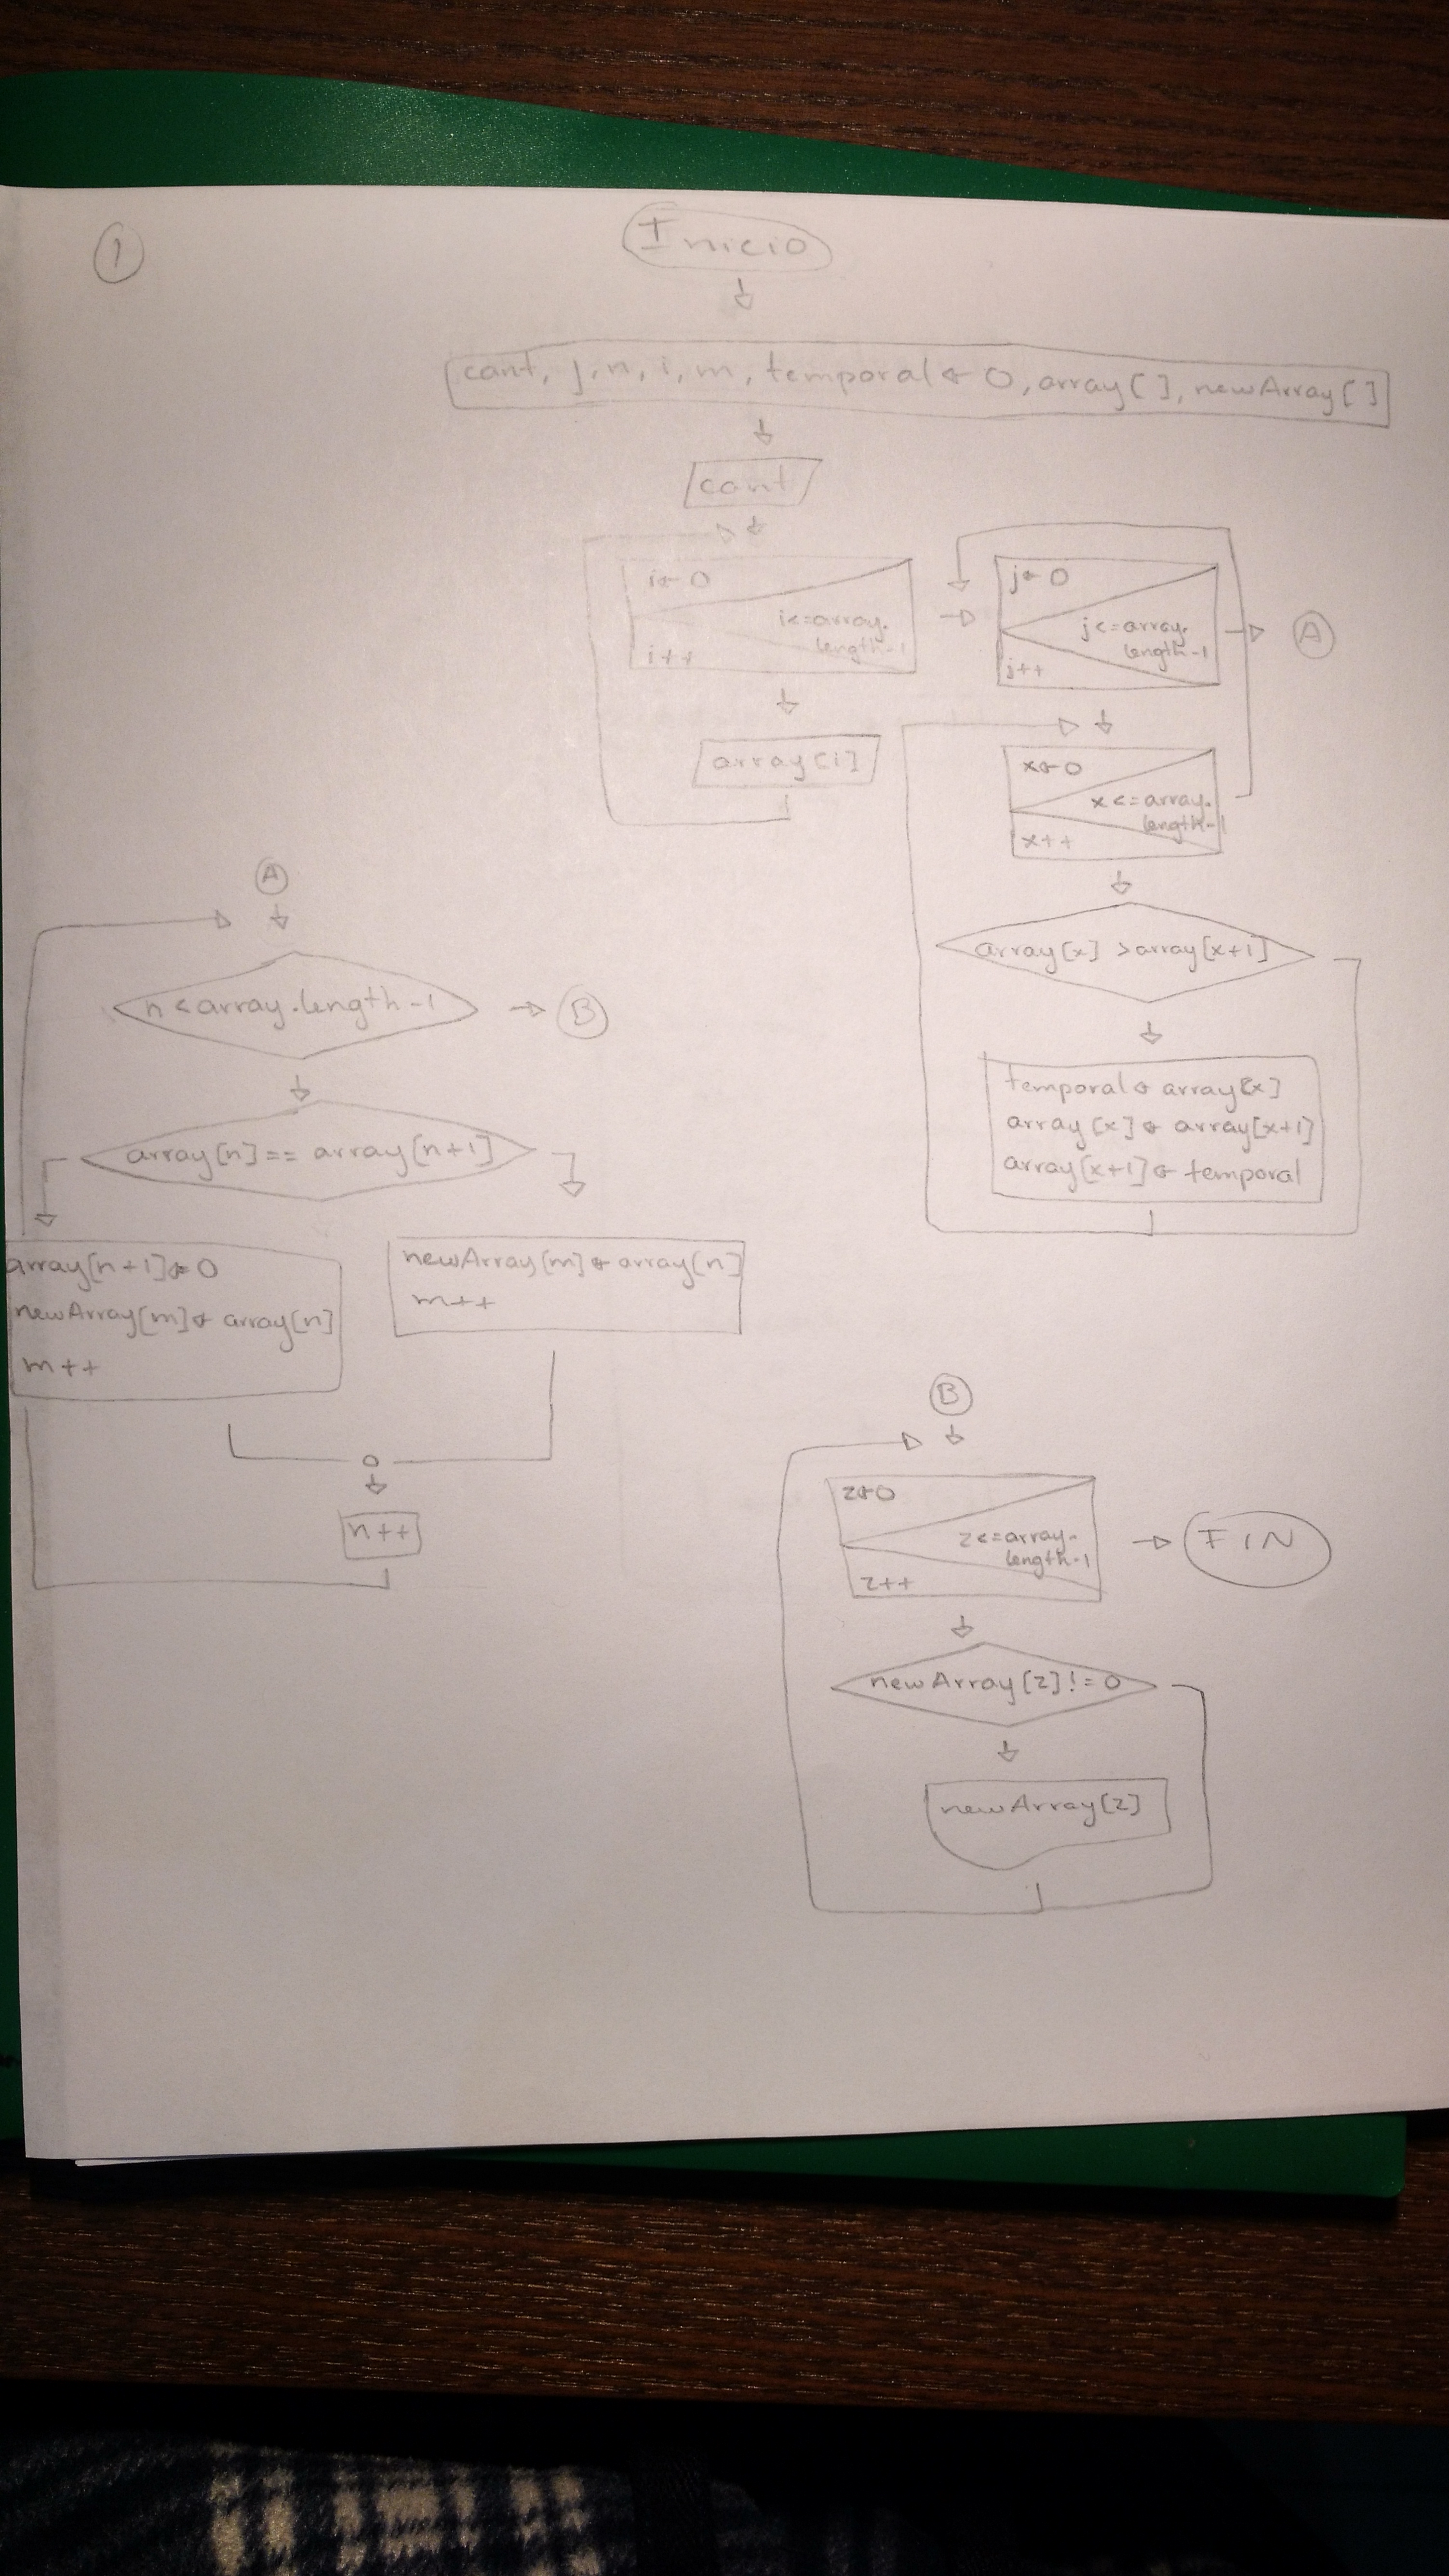 1
Inicio
cant, j, n, i, m, temporal ← 0, array[ ], newArray[ ]
cant
i ← 0
i<=array.
length-1
i++
array[i]
j ← 0
j<=array.
length-1
j++
A
x ← 0
x<=array.
length-1
x++
array[x] > array[x+1]
temporal ← array[x]
array[x] ← array[x+1]
array[x+1] ← temporal
A
n < array.length-1
B
array[n] == array[n+1]
array[n+1] ← 0
newArray[m] ← array[n]
m++
newArray[m] ← array[n]
m++
n++
B
z ← 0
z<=array.
length-1
z++
FIN
newArray[z] != 0
newArray[z]